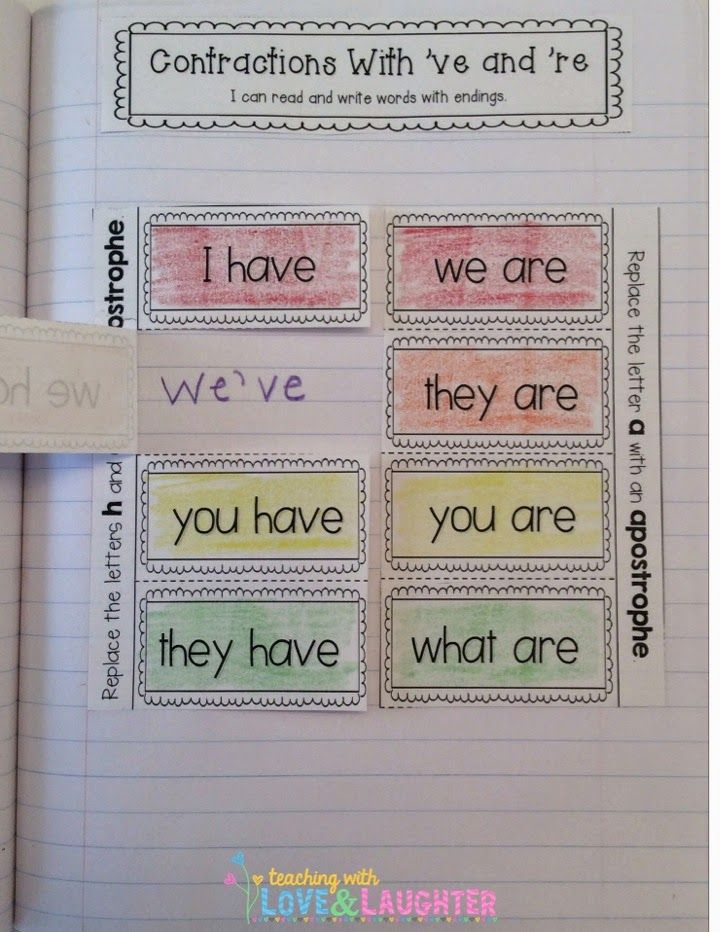 Contractions With 've and 're
I can read and write words with endings.
Replace the letters h and
ostrophe.
I have
we ha
we've
you have
they have
we are
they are
you are
what are
Replace the letter a with an apostrophe.
teaching with
LOVE&LAUGHTER